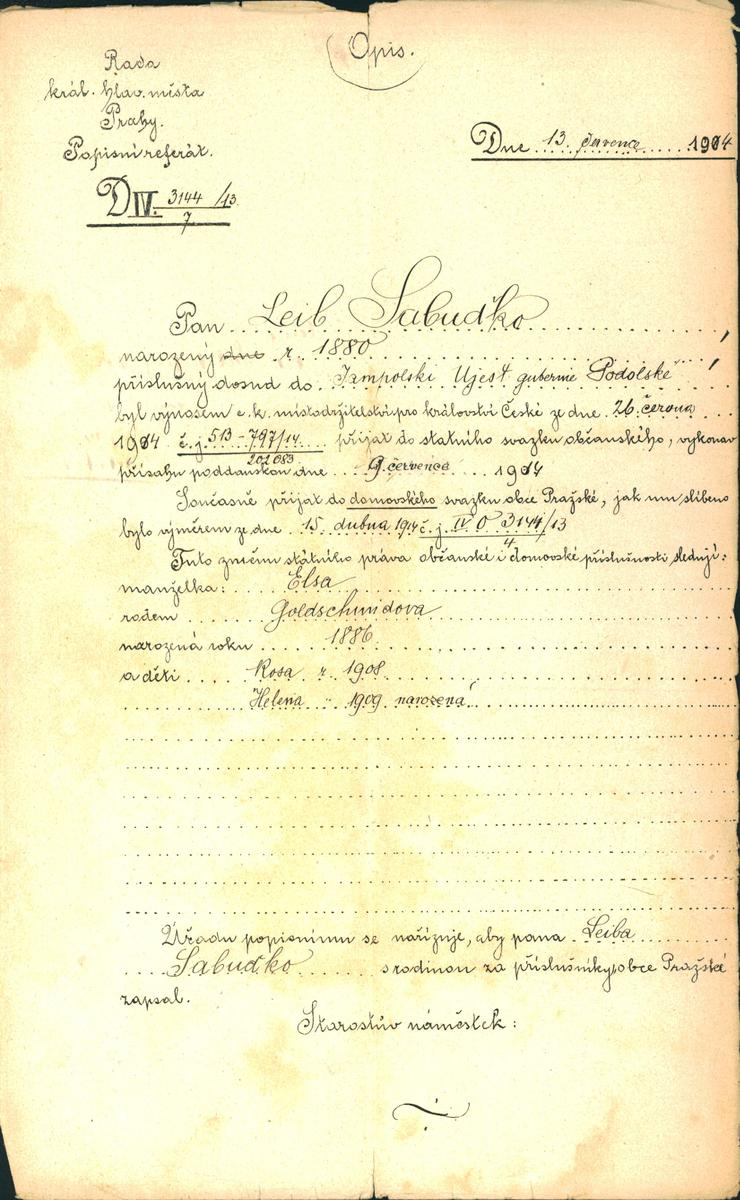 Opis.
Rada
král. hlav. města
Prahy.
Popisní referát.
Dne 13. července 1914
D IV. 3144/13
7
Pan Leib Sabuďko
narozený dne r. 1880
příslušný dosud do Jampolski Ujest gubernie Podolské
byl výnosem c. k. místodržitelství pro království České ze dne 26. června
1914 č. j. 513-797/14 přijat do státního svazku občanského, vykonav
202083
přísahu poddanskou dne 9. července 1914
Současně přijat do domovského svazku obce Pražské, jak mu slíbeno
bylo výměrem ze dne 15. dubna 1914 č. j. IV D 3144/13
4
Tuto změnu státního práva občanské i domovské příslušnosti sledují:
manželka: Elsa
rodem Goldschmidova
narozená roku 1886
a děti Rosa r. 1908
Helena " 1909 narozená
Úřadu popisnímu se nařizuje, aby pana Leiba
Sabuďko s rodinou za příslušníky obce Pražské
zapsal.
Starostův náměstek: